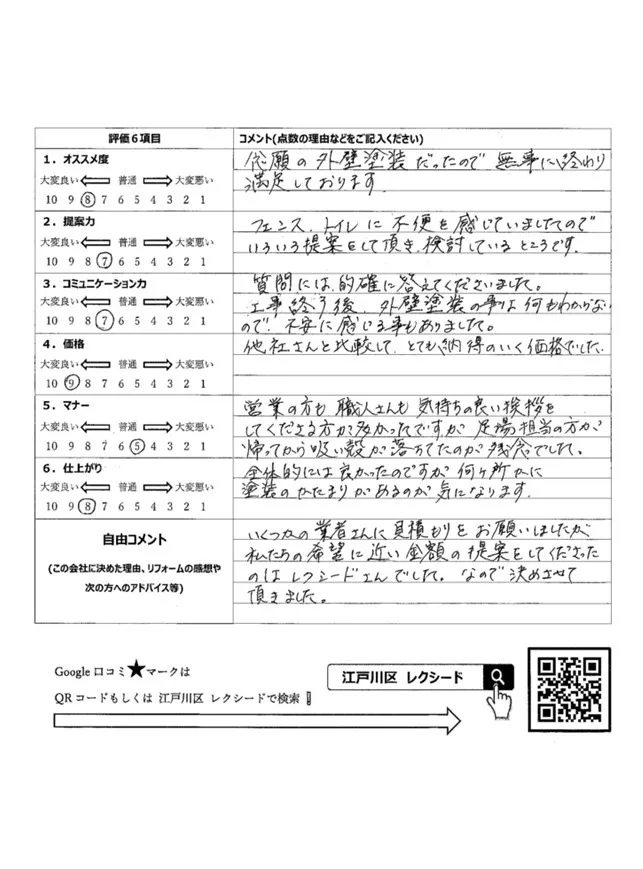 評価6項目
コメント(点数の理由などをご記入ください)
1. オススメ度
大変良い 普通 大変悪い
10 9 8 7 6 5 4 3 2 1
念願の外壁塗装だったので無事に終わり
満足しております
2. 提案力
大変良い 普通 大変悪い
10 9 8 7 6 5 4 3 2 1
フェンス、トイレに不便を感じていましたので
いろいろ提案をして頂き、検討しているところです。
3. コミュニケーション力
大変良い 普通 大変悪い
10 9 8 7 6 5 4 3 2 1
質問には、的確に答えてくださいました。
工事終了後、外壁塗装の事は何もわからない
ので、不安に感じる事もありました。
4. 価格
大変良い 普通 大変悪い
10 9 8 7 6 5 4 3 2 1
他社さんと比較して、とても納得のいく価格でした。
5. マナー
大変良い 普通 大変悪い
10 9 8 7 6 5 4 3 2 1
営業の方も職人さんも気持ちの良い挨拶を
してくださる方が多かったですが、足場担当の方が
帰ってから吸い殻が落ちてたのが残念でした。
6. 仕上がり
大変良い 普通 大変悪い
10 9 8 7 6 5 4 3 2 1
全体的には良かったのですが何ヶ所かに
塗装のかたまりがあるのが気になります。
自由コメント
(この会社に決めた理由、リフォームの感想や
次の方へのアドバイス等)
いくつかの業者さんに見積もりをお願いしましたが
私たちの希望に近い金額の提案をしてくださった
のはレクシードさんでした。なので決めさせて
頂きました。
Google 口コミ★マークは
QRコードもしくは 江戸川区 レクシードで検索!
江戸川区 レクシード